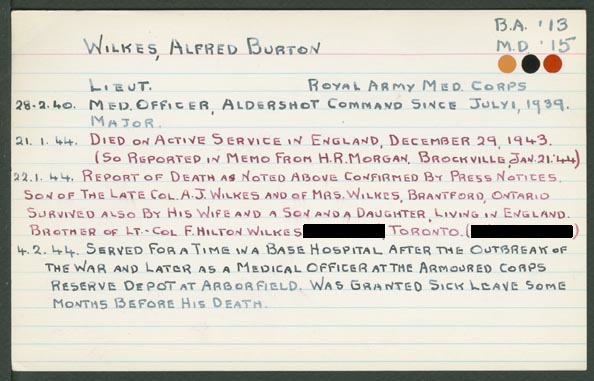 B.A. '13
WILKES, ALFRED BURTON M.D. '15
LIEUT. ROYAL ARMY MED. CORPS
28-2-40. MED. OFFICER, ALDERSHOT COMMAND SINCE JULY 1, 1939.
MAJOR.
21.1.44. DIED ON ACTIVE SERVICE IN ENGLAND, DECEMBER 29, 1943.
(SO REPORTED IN MEMO FROM H.R. MORGAN, BROCKVILLE, JAN. 21.'44)
22.1.44. REPORT OF DEATH AS NOTED ABOVE CONFIRMED BY PRESS NOTICES.
SON OF THE LATE COL. A.J. WILKES AND OF MRS. WILKES, BRANTFORD, ONTARIO
SURVIVED ALSO BY HIS WIFE AND A SON AND A DAUGHTER, LIVING IN ENGLAND.
BROTHER OF LT.-COL F. HILTON WILKES TORONTO. ( )
4.2.44. SERVED FOR A TIME IN A BASE HOSPITAL AFTER THE OUTBREAK OF
THE WAR AND LATER AS A MEDICAL OFFICER AT THE ARMOURED CORPS
RESERVE DEPOT AT ARBORFIELD. WAS GRANTED SICK LEAVE SOME
MONTHS BEFORE HIS DEATH.